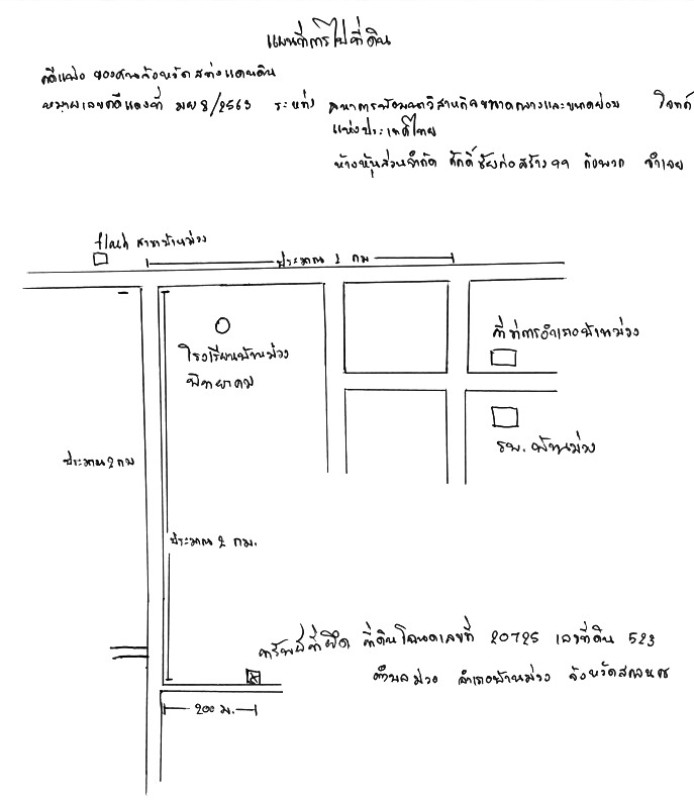 แผนที่การไปที่ดิน
คดีแพ่ง ของศาลจังหวัดสว่างแดนดิน
หมายเลขคดีแดงที่ ผบ 8/2563 ระหว่าง ธนาคารพัฒนาวิสาหกิจขนาดกลางและขนาดย่อม โจทก์
แห่งประเทศไทย
ห้างหุ้นส่วนจำกัด ศักดิ์ชัยก่อสร้าง กับพวก จำเลย
flash สาขาบ้านม่วง
ประมาณ 1 กม
โรงเรียนบ้านม่วง
พิทยาคม
ที่ว่าการอำเภอบ้านม่วง
รพ. บ้านม่วง
ประมาณ 2 กม
ประมาณ 2 กม.
ทรัพย์ที่ยึด ที่ดินโฉนดเลขที่ 20725 เลขที่ดิน 523
ตำบลม่วง อำเภอบ้านม่วง จังหวัดสกลนคร
200 ม.